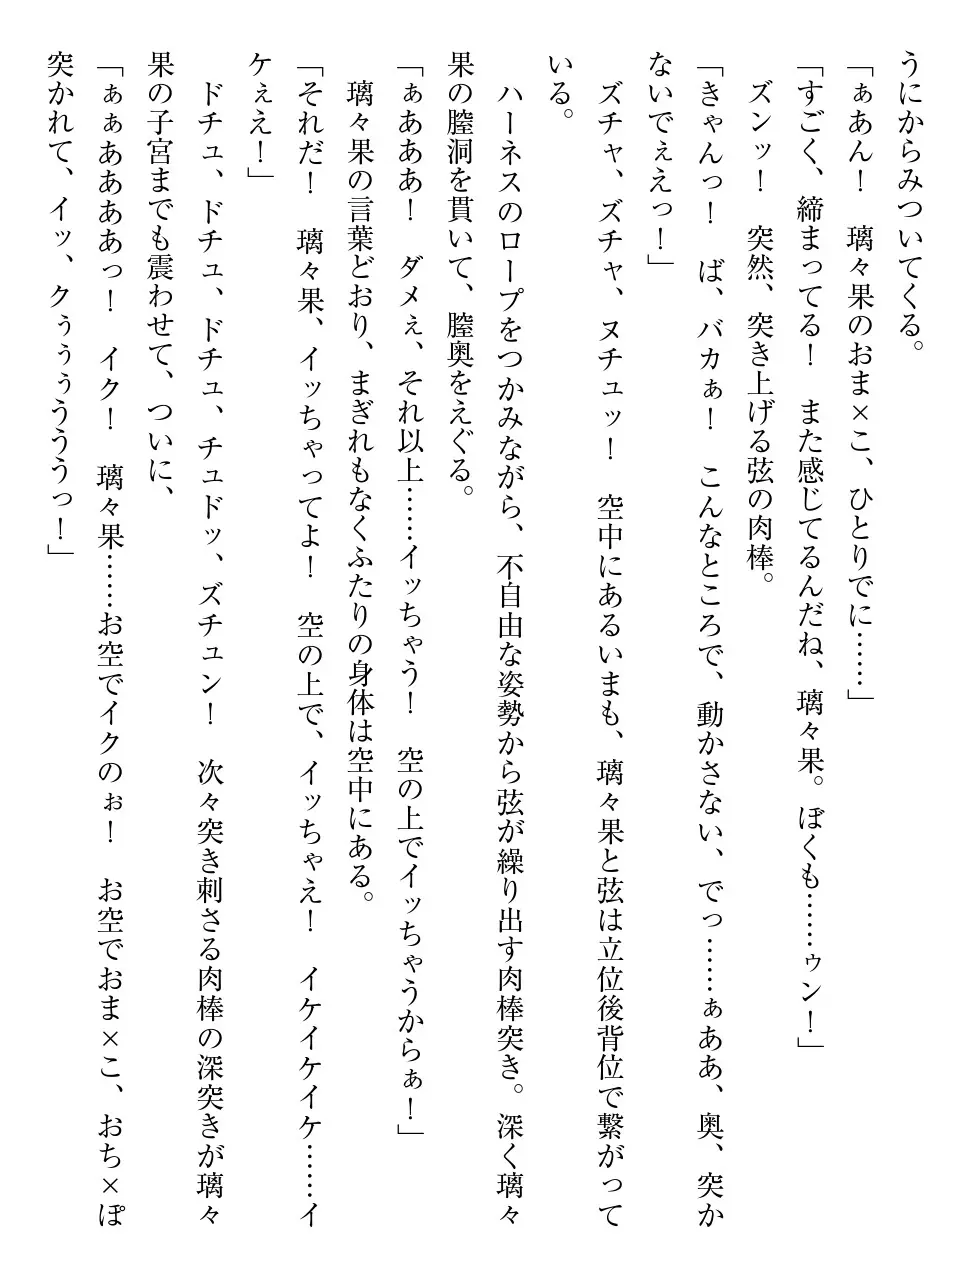 うにからみついてくる。
「ぁあん！　璃々果のおま×こ、ひとりでに……」
「すごく、締まってる！　また感じてるんだね、璃々果。ぼくも……ゥン！」
　ズンッ！　突然、突き上げる弦の肉棒。
「きゃんっ！　ば、バカぁ！　こんなところで、動かさない、でっ……ぁああ、奥、突か
ないでぇえっ！」
　ズチャ、ズチャ、ヌチュッ！　空中にあるいまも、璃々果と弦は立位後背位で繋がって
いる。
　ハーネスのロープをつかみながら、不自由な姿勢から弦が繰り出す肉棒突き。深く璃々
果の膣洞を貫いて、膣奥をえぐる。
「ぁあああ！　ダメぇ、それ以上……イッちゃう！　空の上でイッちゃうからぁ！」
　璃々果の言葉どおり、まぎれもなくふたりの身体は空中にある。
「それだ！　璃々果、イッちゃってよ！　空の上で、イッちゃえ！　イケイケイケ……イ
ケぇえ！」
　ドチュ、ドチュ、ドチュ、チュドッ、ズチュン！　次々突き刺さる肉棒の深突きが璃々
果の子宮までも震わせて、ついに、
「ぁぁああああっ！　イク！　璃々果……お空でイクのぉ！　お空でおま×こ、おち×ぽ
突かれて、イッ、クぅぅぅうううっ！」